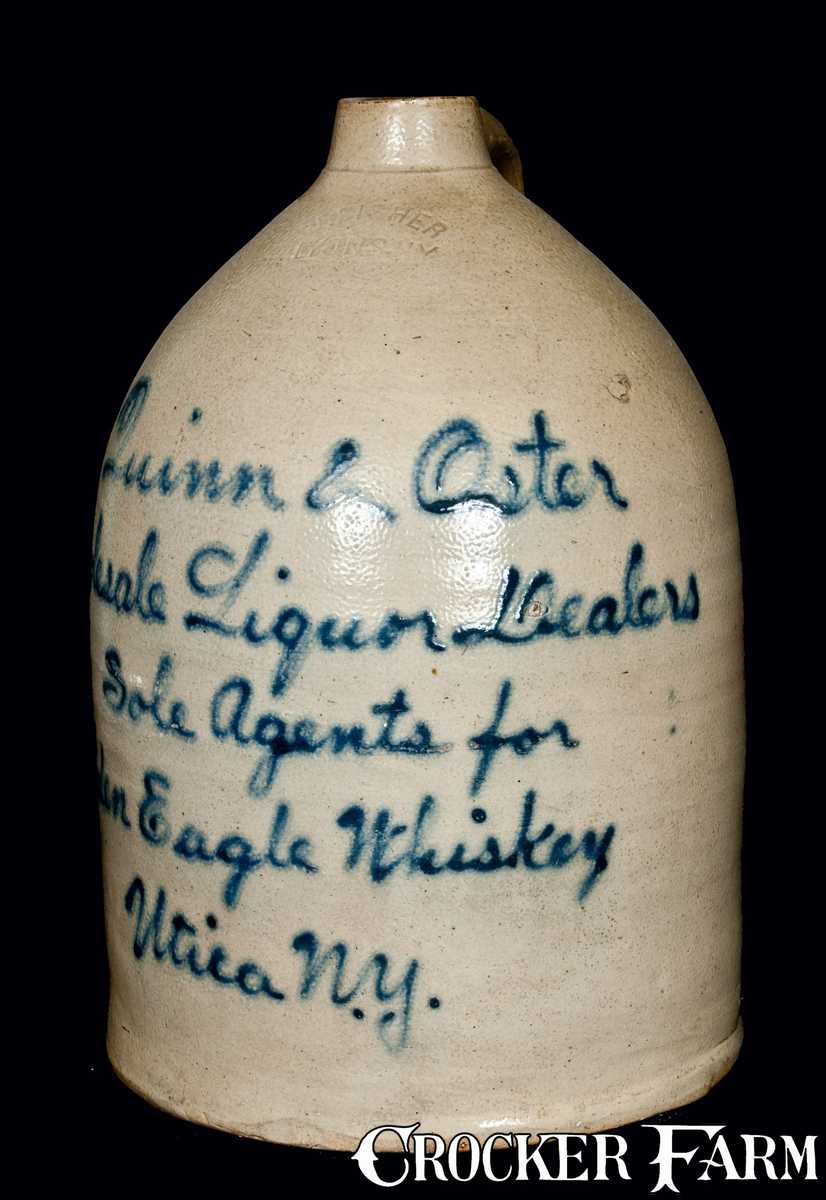 LYONS NY
Quinn & Oster
Liquor Dealers
Sole Agents for
Eagle Whiskey
Utica N.Y.
CROCKER FARM